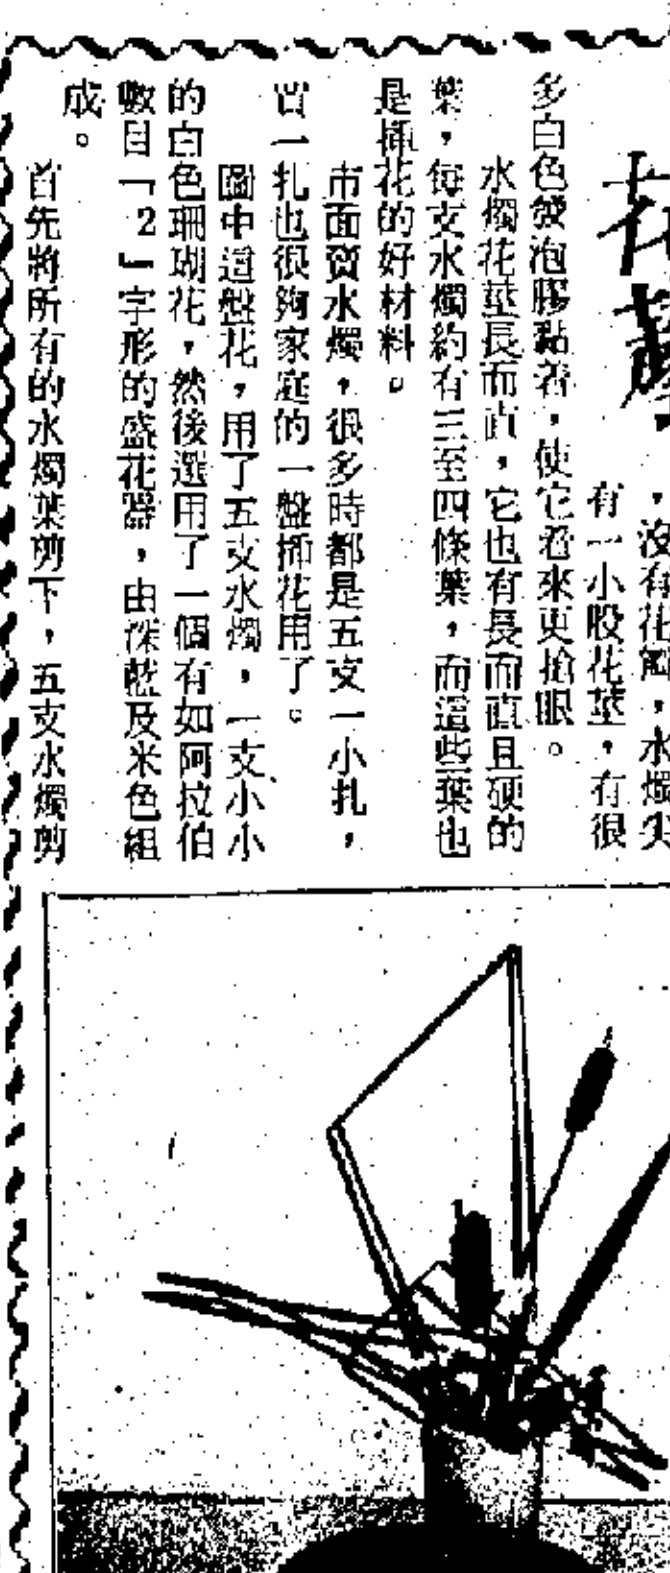 花藝
，沒有花瓣，水燭尖
有一小股花莖，有很
多白色發泡膠黏着，使它看來更搶眼。
水燭花莖長而直，它也有長而直且硬的
葉，每支水燭約有三至四條葉，而這些葉也
是插花的好材料。
市面賣水燭，很多時都是五支一小扎，
買一扎也很夠家庭的一盤插花用了。
圖中這盤花，用了五支水燭，一支小小
的白色珊瑚花，然後選用了一個有如阿拉伯
數目「2」字形的盛花器，由深藍及米色組
成。
首先將所有的水燭葉剪下，五支水燭剪